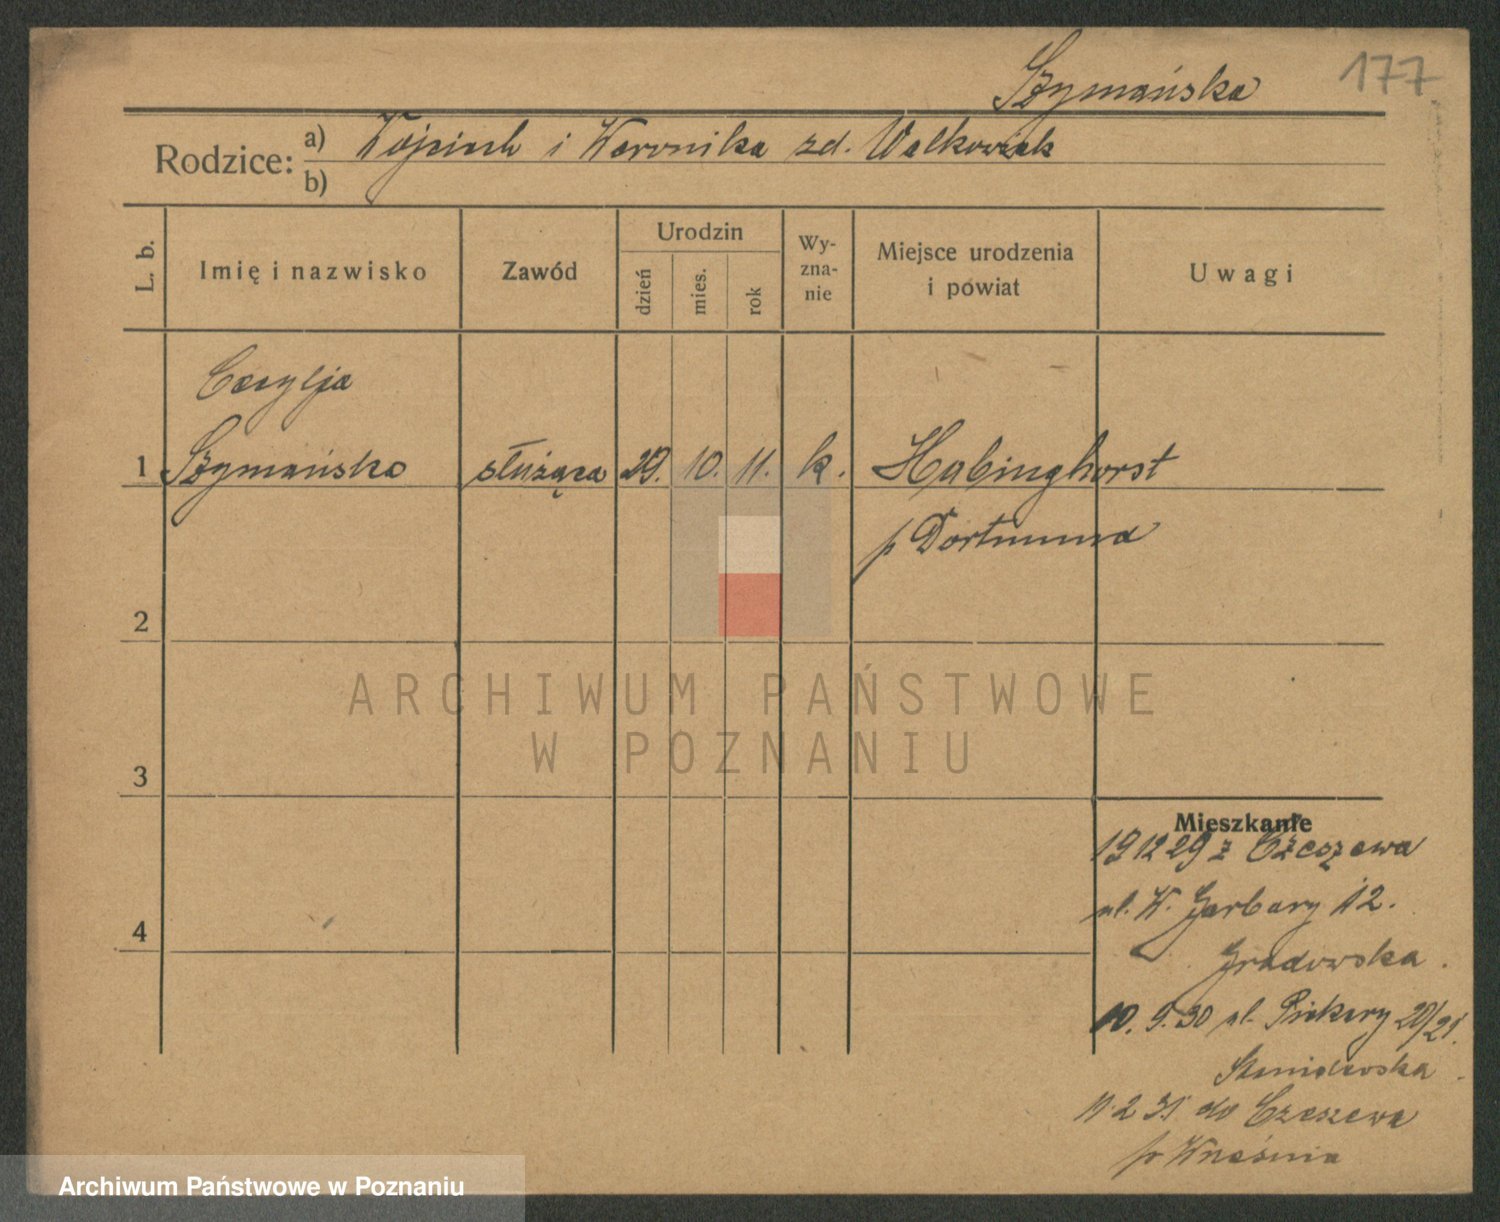 Szymańska
177
Rodzice: a) Wojciech i Weronika zd. Walkowiak
b)
L. b.
Imię i nazwisko
Zawód
Urodzin
dzień
mies.
rok
Wy-
zna-
nie
Miejsce urodzenia
i powiat
Uwagi
Cecylja
1 Szymańska służąca 29. 10. 11. k. Habinghorst
p Dortmund
2
3
4
ARCHIWUM PAŃSTWOWE
W POZNANIU
Mieszkanie
19 12 29 z Czeszewa
ul. W. Garbary 12.
Gradowska.
10. 9. 30 ul. Piekary 20/21.
11 2 31 do Czeszewa
p Września
Archiwum Państwowe w Poznaniu